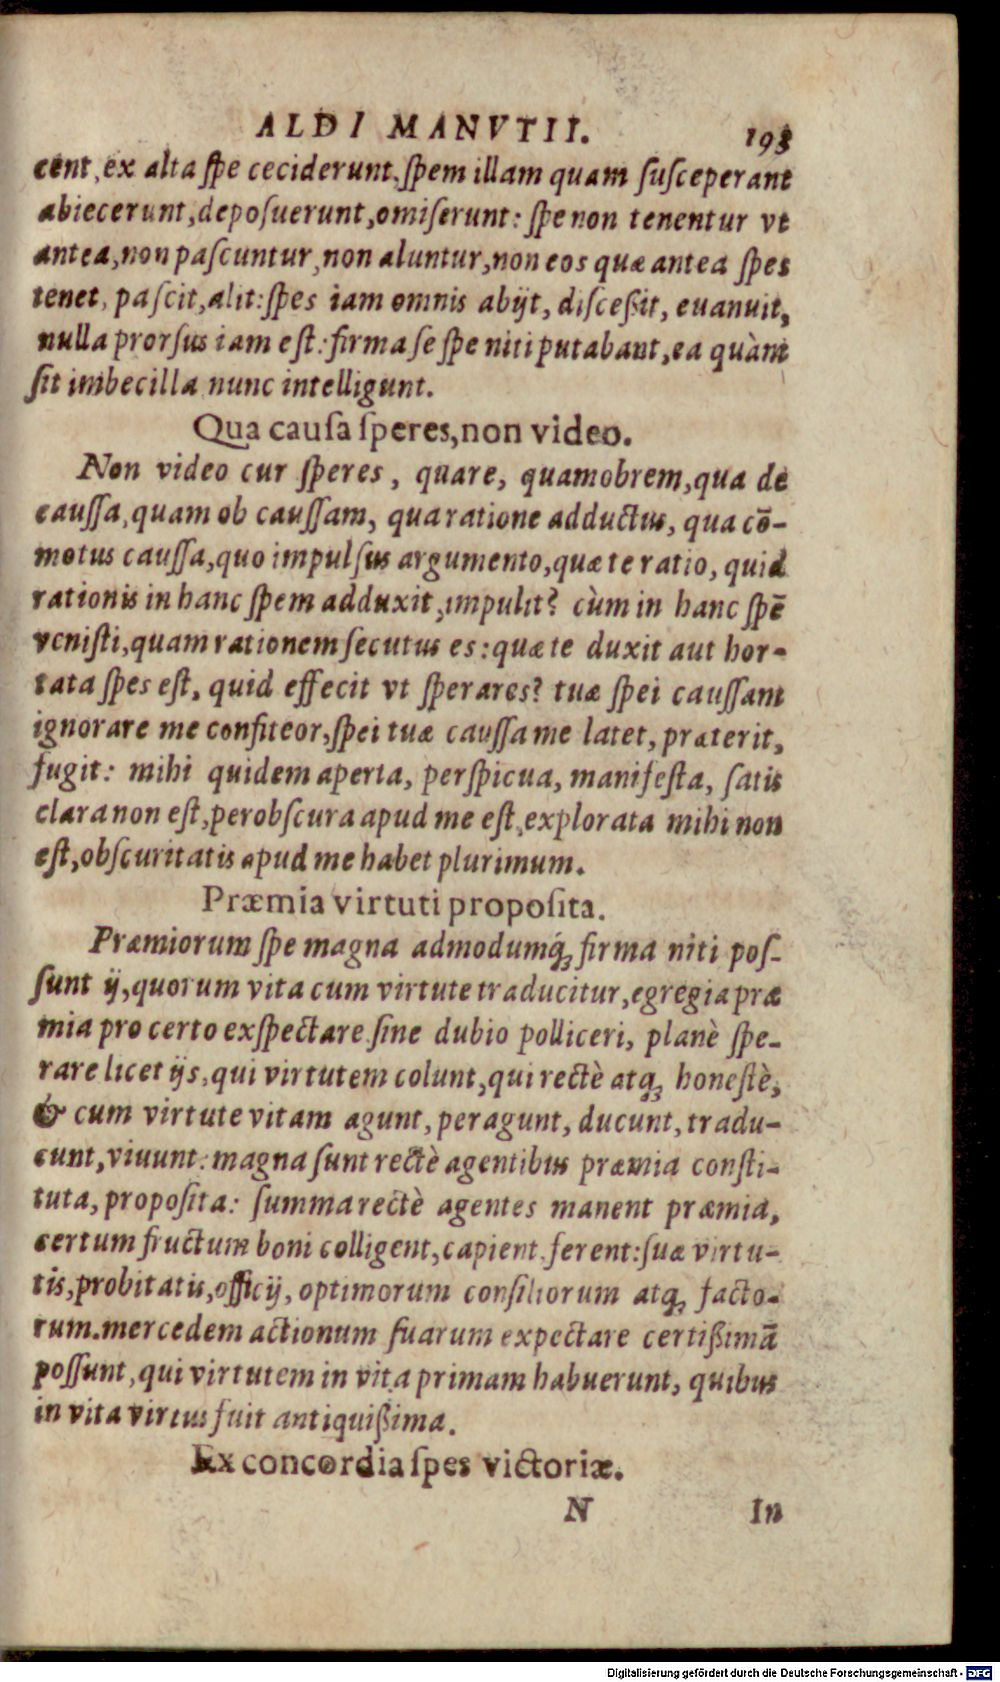 ALDI MANVTII. 193
cent, ex alta ſpe ceciderunt, ſpem illam quam ſuſceperant
abiecerunt, depoſuerunt, omiſerunt: ſpe non tenentur vt
antea, non paſcuntur, non aluntur, non eos quæ antea ſpes
tenet, paſcit, alit: ſpes iam omnis abijt, diſceßit, euanuit,
nulla prorſus iam eſt: firma ſe ſpe niti putabant, ea quàm
ſit imbecilla nunc intelligunt.
Qua cauſa ſperes, non video.
Non video cur ſperes, quare, quamobrem, qua de
cauſſa, quam ob cauſſam, qua ratione adductus, qua cō-
motus cauſſa, quo impulſus argumento, quæ te ratio, quid
rationis in hanc ſpem adduxit, impulit? cùm in hanc ſpē
veniſti, quam rationem ſecutus es: quæ te duxit aut hor-
tata ſpes eſt, quid effecit vt ſperares? tuæ ſpei cauſſam
ignorare me confiteor, ſpei tuæ cauſſa me latet, præterit,
fugit: mihi quidem aperta, perſpicua, manifeſta, ſatis
clara non eſt, perobſcura apud me eſt, explorata mihi non
eſt, obſcuritatis apud me habet plurimum.
Præmia virtuti propoſita.
Præmiorum ſpe magna admodumq́ꝫ firma niti poſ-
ſunt ij, quorum vita cum virtute traducitur, egregia præ
mia pro certo exſpectare ſine dubio polliceri, planè ſpe-
rare licet ijs, qui virtutem colunt, qui rectè atqꝫ honeſtè,
& cum virtute vitam agunt, peragunt, ducunt, tradu-
cunt, viuunt: magna ſunt rectè agentibus præmia conſti-
tuta, propoſita: ſumma rectè agentes manent præmia,
certum fructum boni colligent, capient, ferent: ſuæ virtu-
tis, probitatis, officij, optimorum conſiliorum atqꝫ facto-
rum. mercedem actionum ſuarum expectare certißimā
poſſunt, qui virtutem in vita primam habuerunt, quibus
in vita virtus fuit antiquißima.
Ex concordia ſpes victoriæ.
N In
Digitalisierung gefördert durch die Deutsche Forschungsgemeinschaft - DFG